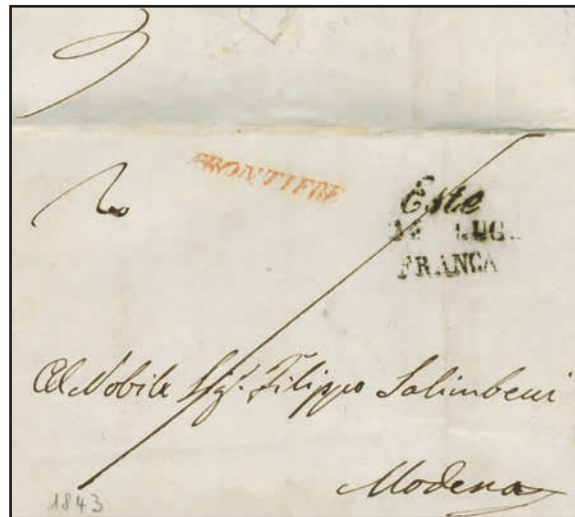 FRONTIERE
Este
LUG.
FRANCA
Al Nobile Sigr. Filippo Salimbeni
Modena
1843